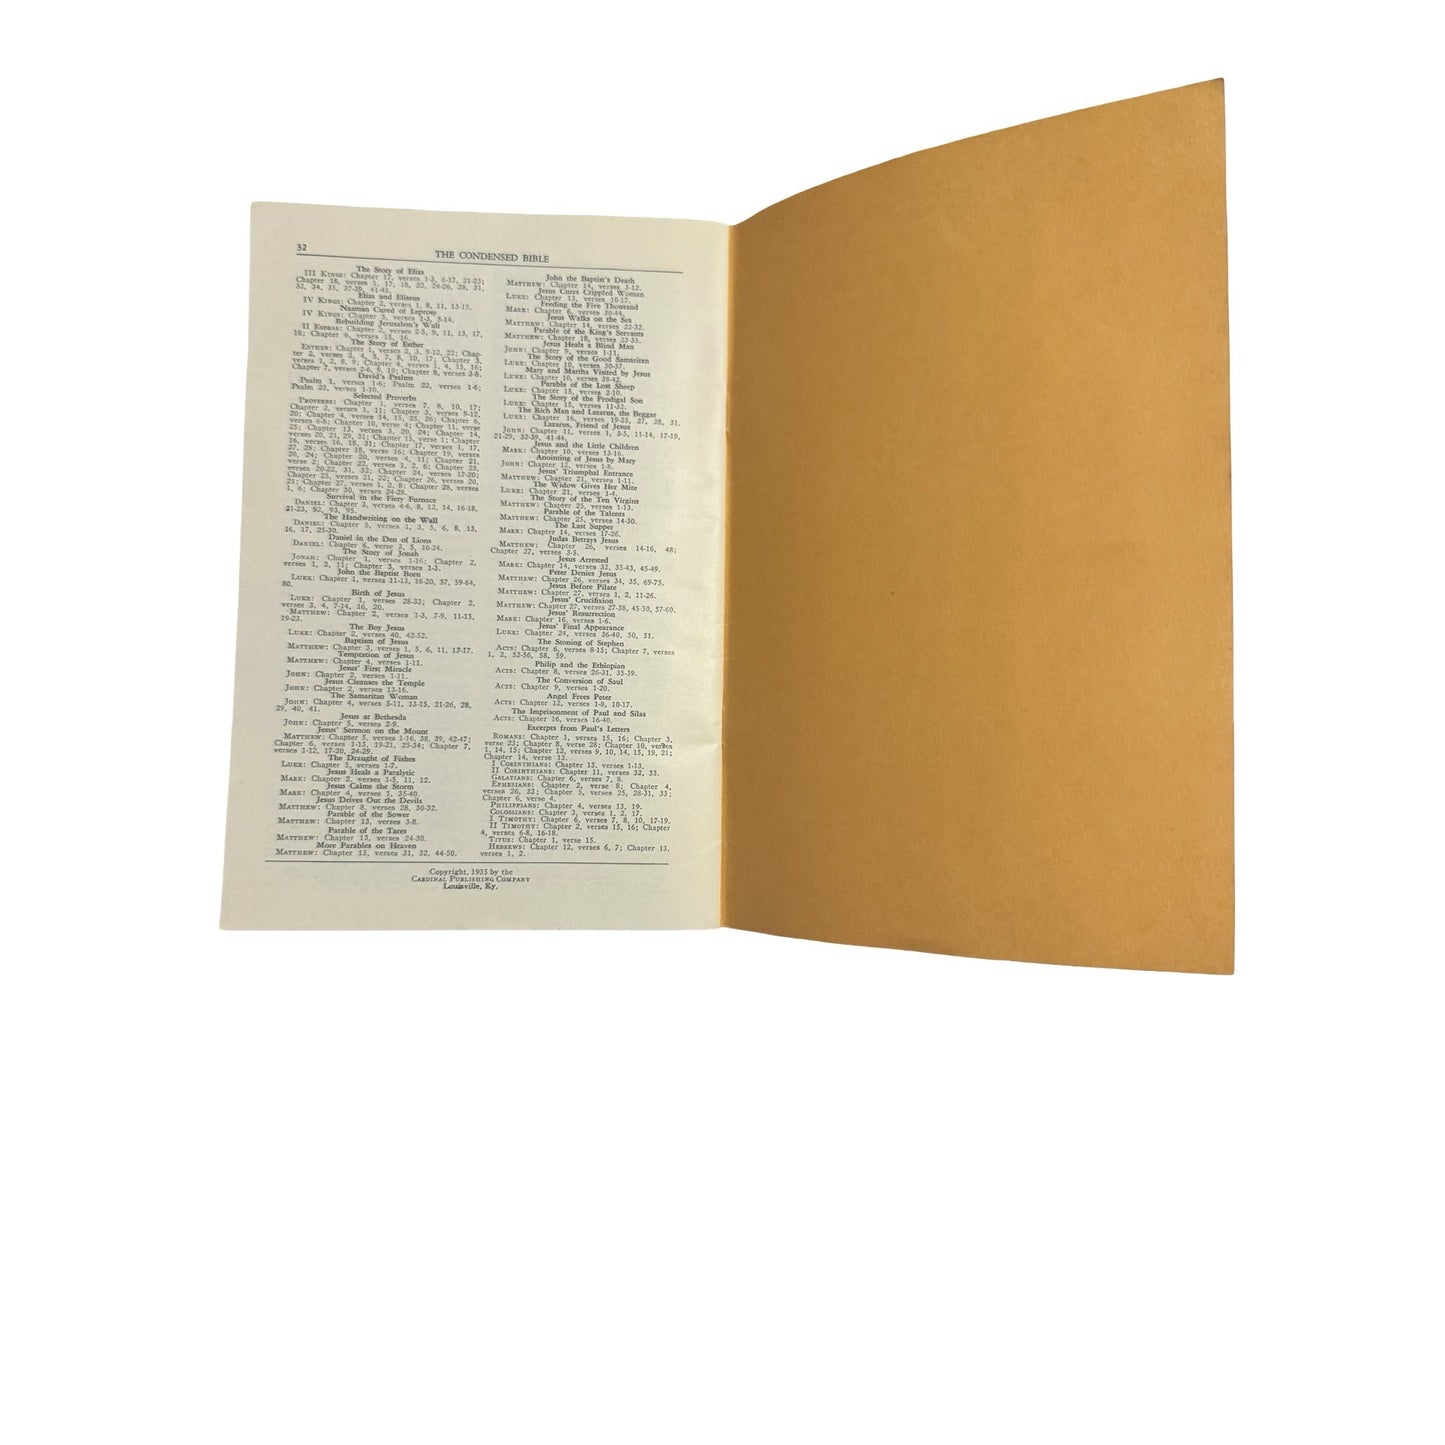 32
THE CONDENSED BIBLE
The Story of Elias
III KINGS: Chapter 17, verses 1-3, 6-17, 21-23;
Chapter 18, verses 1, 17, 18, 22, 24-26, 28, 31,
32, 34, 35, 37-39, 41-45.
Elias and Eliseus
IV KINGS: Chapter 2, verses 1, 8, 11, 12-15.
Naaman Cured of Leprosy
IV KINGS: Chapter 5, verses 1-3, 5-14.
Rebuilding Jerusalem's Wall
II ESDRAS: Chapter 2, verses 2-5, 9, 11, 13, 17,
18; Chapter 6, verses 15, 16.
The Story of Esther
ESTHER: Chapter 1, verses 2, 3, 9-12, 22; Chap-
ter 2, verses 2, 4, 5, 7, 8, 10, 17; Chapter 3,
verses 1, 2, 8, 9; Chapter 4, verses 1, 4, 15, 16;
Chapter 7, verses 2-6, 9, 10; Chapter 8, verses 3-8.
David's Psalms
Psalm 1, verses 1-6; Psalm 22, verses 1-6;
Psalm 23, verses 1-10.
Selected Proverbs
PROVERBS: Chapter 1, verses 7, 8, 10, 17;
Chapter 2, verses 1, 11; Chapter 3, verses 9-12,
20; Chapter 4, verses 14, 15, 25, 26; Chapter 6,
verses 6-8; Chapter 10, verse 4; Chapter 11, verse
25; Chapter 13, verses 3, 20, 24; Chapter 14,
verses 20, 21, 29, 31; Chapter 15, verse 1; Chapter
16, verses 16, 18, 31; Chapter 17, verses 1, 17,
27, 28; Chapter 18, verse 16; Chapter 19, verses
20, 24; Chapter 20, verses 4, 11; Chapter 21,
verse 2; Chapter 22, verses 1, 2, 6; Chapter 23,
verses 20-22, 31, 32; Chapter 24, verses 17-20;
Chapter 25, verses 21, 22; Chapter 26, verses 20,
21; Chapter 27, verses 1, 2, 8; Chapter 28, verses
1, 6; Chapter 30, verses 24-28.
Survival in the Fiery Furnace
DANIEL: Chapter 3, verses 4-6, 8, 12, 14, 16-18,
21-23, 92, 93, 95.
The Handwriting on the Wall
DANIEL: Chapter 5, verses 1, 3, 5, 6, 8, 13,
16, 17, 25-30.
Daniel in the Den of Lions
DANIEL: Chapter 6, verse 3, 5, 10-24.
The Story of Jonah
JONAH: Chapter 1, verses 1-16; Chapter 2,
verses 1, 2, 11; Chapter 3, verses 1-3.
John the Baptist Born
LUKE: Chapter 1, verses 11-13, 16-20, 57, 59-64,
80.
Birth of Jesus
LUKE: Chapter 1, verses 28-33; Chapter 2,
verses 3, 4, 7-14, 16, 20.
MATTHEW: Chapter 2, verses 1-3, 7-9, 11-15,
19-23.
The Boy Jesus
LUKE: Chapter 2, verses 40, 42-52.
Baptism of Jesus
MATTHEW: Chapter 3, verses 1, 5, 6, 11, 13-17.
Temptation of Jesus
MATTHEW: Chapter 4, verses 1-11.
Jesus' First Miracle
JOHN: Chapter 2, verses 1-11.
Jesus Cleanses the Temple
JOHN: Chapter 2, verses 13-16.
The Samaritan Woman
JOHN: Chapter 4, verses 5-11, 13-15, 21-26, 28,
29, 40, 41.
Jesus at Bethesda
JOHN: Chapter 5, verses 2-9.
Jesus' Sermon on the Mount
MATTHEW: Chapter 5, verses 1-16, 38, 39, 42-47;
Chapter 6, verses 1-13, 19-21, 25-34; Chapter 7,
verses 1-12, 17-20, 24-29.
The Draught of Fishes
LUKE: Chapter 5, verses 1-7.
Jesus Heals a Paralytic
MARK: Chapter 2, verses 1-5, 11, 12.
Jesus Calms the Storm
MARK: Chapter 4, verses 1, 35-40.
Jesus Drives Out the Devils
MATTHEW: Chapter 8, verses 28, 30-32.
Parable of the Sower
MATTHEW: Chapter 13, verses 3-8.
Parable of the Tares
MATTHEW: Chapter 13, verses 24-30.
More Parables on Heaven
MATTHEW: Chapter 13, verses 31, 32, 44-50.
John the Baptist's Death
MATTHEW: Chapter 14, verses 3-12.
Jesus Cures Crippled Woman
LUKE: Chapter 13, verses 10-17.
Feeding the Five Thousand
MARK: Chapter 6, verses 30-44.
Jesus Walks on the Sea
MATTHEW: Chapter 14, verses 22-32.
Parable of the King's Servants
MATTHEW: Chapter 18, verses 23-35.
Jesus Heals a Blind Man
JOHN: Chapter 9, verses 1-11.
The Story of the Good Samaritan
LUKE: Chapter 10, verses 30-37.
Mary and Martha Visited by Jesus
LUKE: Chapter 10, verses 38-42.
Parable of the Lost Sheep
LUKE: Chapter 15, verses 2-10.
The Story of the Prodigal Son
LUKE: Chapter 15, verses 11-32.
The Rich Man and Lazarus, the Beggar
LUKE: Chapter 16, verses 19-25, 27, 28, 31.
Lazarus, Friend of Jesus
JOHN: Chapter 11, verses 1, 3-5, 11-14, 17-19,
21-29, 32-39, 41-44.
Jesus and the Little Children
MARK: Chapter 10, verses 13-16.
Anointing of Jesus by Mary
JOHN: Chapter 12, verses 1-8.
Jesus' Triumphal Entrance
MATTHEW: Chapter 21, verses 1-11.
The Widow Gives Her Mite
LUKE: Chapter 21, verses 1-4.
The Story of the Ten Virgins
MATTHEW: Chapter 25, verses 1-13.
Parable of the Talents
MATTHEW: Chapter 25, verses 14-30.
The Last Supper
MARK: Chapter 14, verses 17-26.
Judas Betrays Jesus
MATTHEW: Chapter 26, verses 14-16, 48;
Chapter 27, verses 3-5.
Jesus Arrested
MARK: Chapter 14, verses 32, 35-43, 45-49.
Peter Denies Jesus
MATTHEW: Chapter 26, verses 34, 35, 69-75.
Jesus Before Pilate
MATTHEW: Chapter 27, verses 1, 2, 11-26.
Jesus' Crucifixion
MATTHEW: Chapter 27, verses 27-38, 45-50, 57-60.
Jesus' Resurrection
MARK: Chapter 16, verses 1-6.
Jesus' Final Appearance
LUKE: Chapter 24, verses 36-40, 50, 51.
The Stoning of Stephen
ACTS: Chapter 6, verses 8-15; Chapter 7, verses
1, 2, 52-56, 58, 59.
Philip and the Ethiopian
ACTS: Chapter 8, verses 26-31, 35-39.
The Conversion of Saul
ACTS: Chapter 9, verses 1-20.
Angel Frees Peter
ACTS: Chapter 12, verses 1-8, 10-17.
The Imprisonment of Paul and Silas
ACTS: Chapter 16, verses 16-40.
Excerpts from Paul's Letters
ROMANS: Chapter 1, verses 15, 16; Chapter 3,
verse 23; Chapter 8, verse 28; Chapter 10, verses
1, 14, 15; Chapter 12, verses 9, 10, 14, 15, 19, 21;
Chapter 14, verse 13.
I CORINTHIANS: Chapter 13, verses 1-13.
II CORINTHIANS: Chapter 11, verses 32, 33.
GALATIANS: Chapter 6, verses 7, 8.
EPHESIANS: Chapter 2, verse 8; Chapter 4,
verses 26, 32; Chapter 5, verses 25, 28-31, 33;
Chapter 6, verse 4.
PHILIPPIANS: Chapter 4, verses 13, 19.
COLOSSIANS: Chapter 3, verses 1, 2, 17.
I TIMOTHY: Chapter 6, verses 7, 8, 10, 17-19.
II TIMOTHY: Chapter 2, verses 15, 16; Chapter
4, verses 6-8, 16-18.
TITUS: Chapter 1, verse 15.
HEBREWS: Chapter 12, verses 6, 7; Chapter 13,
verses 1, 2.
Copyright, 1935 by the
CARDINAL PUBLISHING COMPANY
Louisville, Ky.